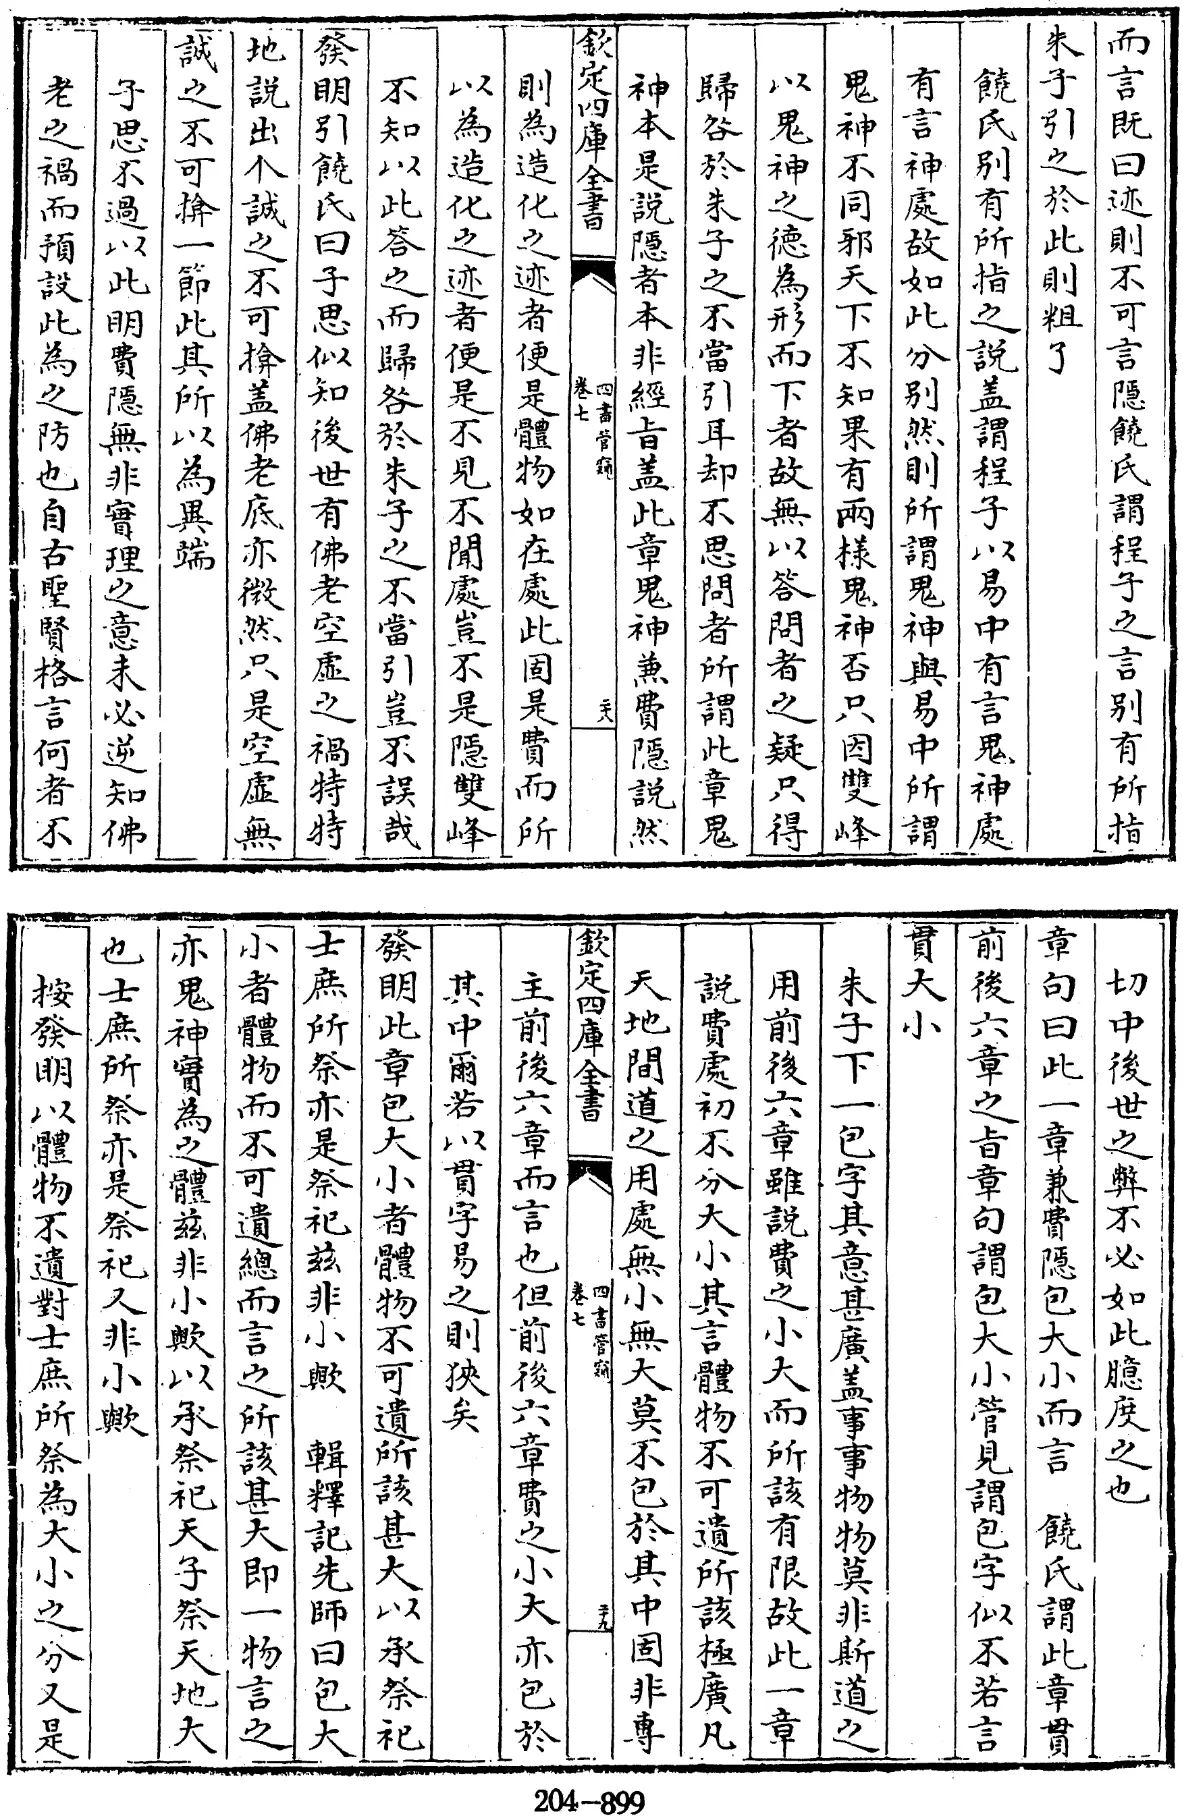 而言既曰迹則不可言隱饒氏謂程子之言别有所指
朱子引之於此則粗了
饒氏别有所指之説盖謂程子以易中有言鬼神處
有言神處故如此分别然則所謂鬼神與易中所謂
鬼神不同邪天下不知果有兩樣鬼神否只因雙峰
以鬼神之德為形而下者故無以答問者之疑只得
歸咎於朱子之不當引耳却不思問者所謂此章鬼
神本是説隱者本非經旨盖此章鬼神兼費隱説然
欽定四庫全書
四書管窺
卷七
二十八
則為造化之迹者便是體物如在處此固是費而所
以為造化之迹者便是不見不聞處豈不是隱雙峰
不知以此答之而歸咎於朱子之不當引豈不誤哉
發明引饒氏曰子思似知後世有佛老空虛之禍特特
地説出个誠之不可揜盖佛老底亦微然只是空虛無
誠之不可揜一節此其所以為異端
子思不過以此明費隱無非實理之意未必逆知佛
老之禍而預設此為之防也自古聖賢格言何者不
切中後世之弊不必如此臆度之也
章句曰此一章兼費隱包大小而言　饒氏謂此章貫
前後六章之旨章句謂包大小管見謂包字似不若言
貫大小
朱子下一包字其意甚廣盖事事物物莫非斯道之
用前後六章雖説費之小大而所該有限故此一章
説費處初不分大小其言體物不可遺所該極廣凡
天地間道之用處無小無大莫不包於其中固非專
欽定四庫全書
四書管窺
卷七
二十九
主前後六章而言也但前後六章費之小大亦包於
其中爾若以貫字易之則狹矣
發明此章包大小者體物不可遺所該甚大以承祭祀
士庶所祭亦是祭祀兹非小歟　輯釋記先師曰包大
小者體物而不可遺總而言之所該甚大即一物言之
亦鬼神實為之體兹非小歟以承祭祀天子祭天地大
也士庶所祭亦是祭祀又非小歟
按發明以體物不遺對士庶所祭為大小之分又是
204-899